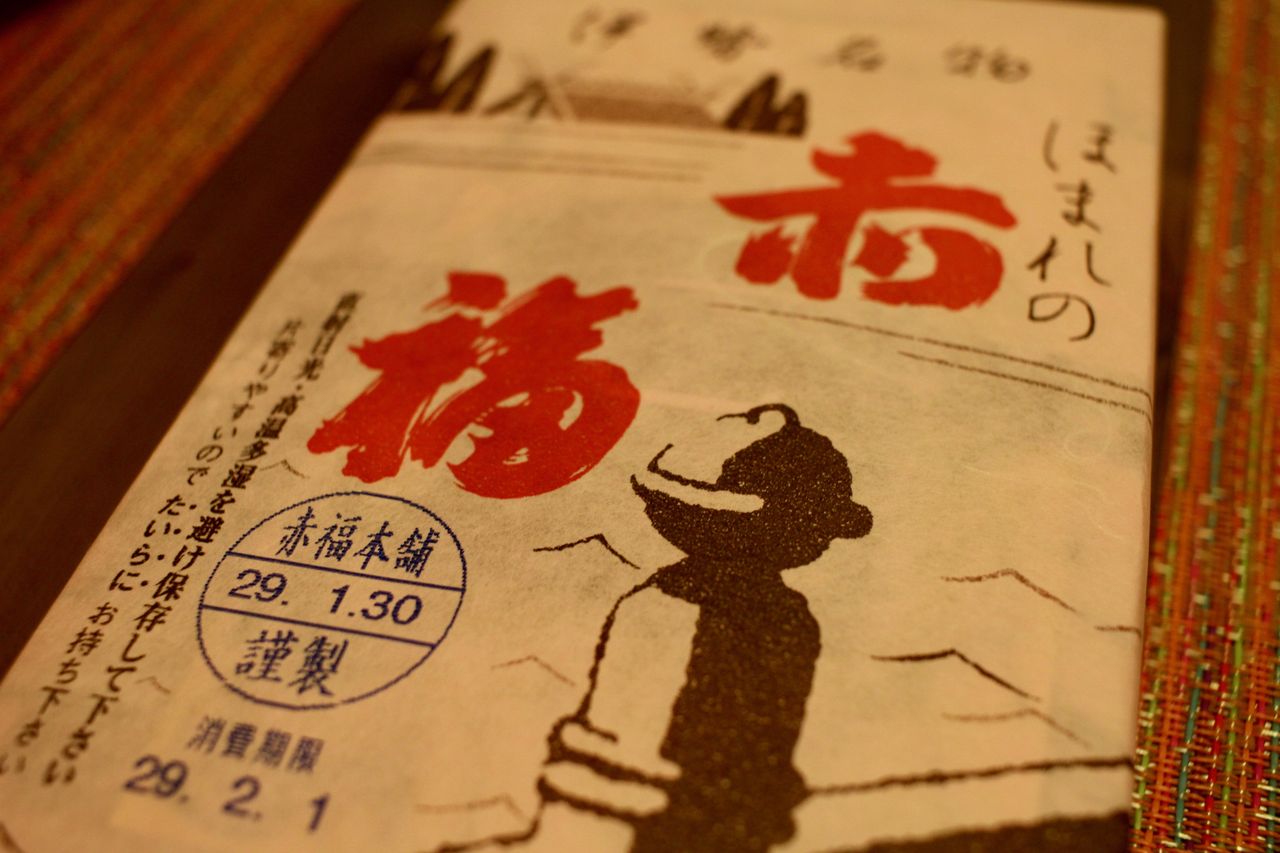 伊勢名物
ほまれの
赤
福
直射日光・高温多湿を避け保存して下さい
片寄りやすいので たいらに お持ち下さい
赤福本舗
29. 1.30
謹製
消費期限
29. 2. 1